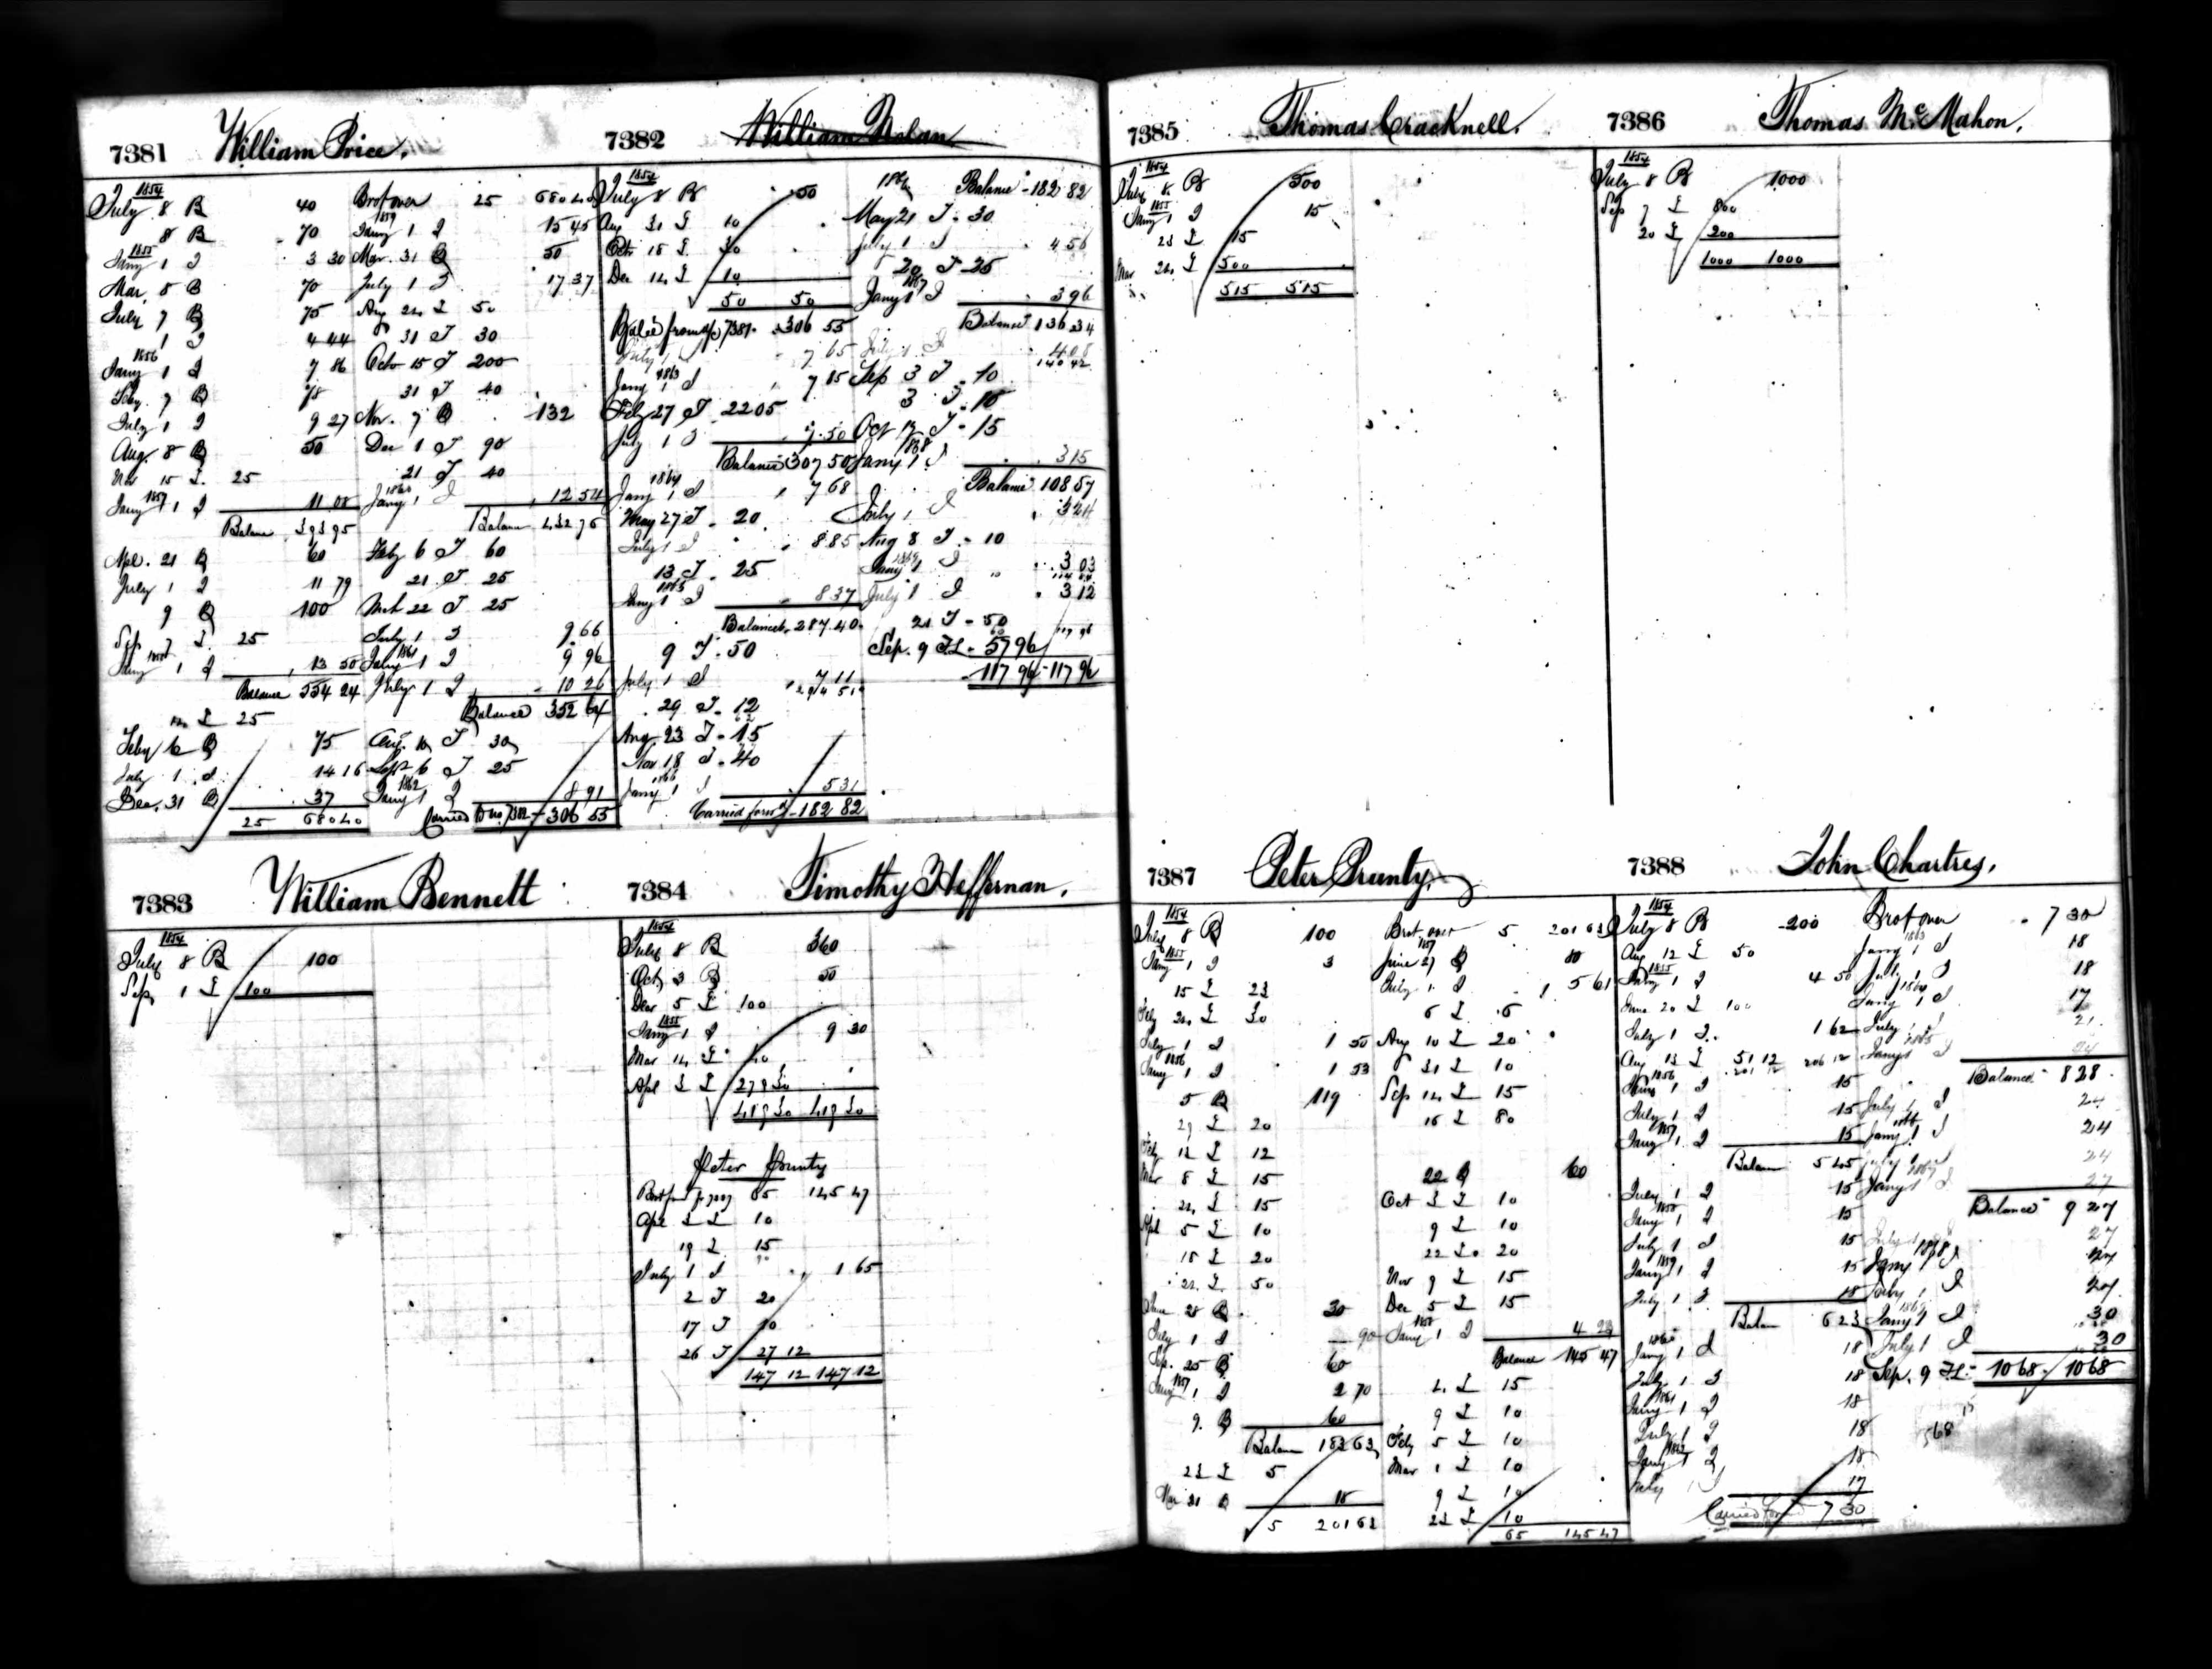 7381 William Price.
1854
July 8 B 40
8 B 70
1855
Jany 1 I 3 30
Mar. 8 B 70
July 7 B 75
1 I 4 44
1856
Jany 1 I 7 86
Feby. 7 B 78
July 1 I 9 27
Aug. 8 B 50
Nov 15 L. 25
1857
Jany 1 I 11 08
Balance 393 95
Apl. 21 B 60
July 1 I 11 79
9 B 100
Sep 7 L 25
1858
Jany 1 I 13 50
Balance 554 24
L 25
Feby 6 B 75
July 1 I 14 16
Dec. 31 B 37
25 680 40
Brot over 25 680 40
1859
Jany 1 I 15 45
Mar. 31 B 50
July 1 I 17 37
Aug 24 L 50
31 T 30
Octo 15 T 200
31 T 40
Nov. 7 B 132
Dec 1 T 90
21 T 40
1860
Jany 1 I 12 54
Balance 432 76
Feby 6 T 60
21 T 25
Mch 22 T 25
July 1 I 9 66
1861
Jany 1 I 9 96
July 1 I 10 26
Balance 352 64
Aug. 10 T 30
Sept 6 T 25
1862
Jany 1 I 8 91
Carried to no. 7382 306 55
7382 William Nolan
1854
July 8 B 50
Aug 31 L 10
Oct 18 L 30
Dec 14 L 10
50 50
Balce from a/c 7381 306 55
July 1 7 65
1863
Jany 1 I 7 85
July 27 T 22 05
July 1 I 7.50
Balance 307 50
1864
Jany 1 I 7 68
May 27 T 20
July 1 I 8 85
13 T 25
1865
Jany 1 I 8 37
Balance 287.40
9 T 50
July 1 I 7 11
29 T 12
Aug 23 T 15
Nov 18 T 40
1866
Jany 1 I 5 31
Carried forwd 182 82
1866 Balance 182 82
May 21 T 30
July 1 I 4 56
20 T 25
1867
Jany 1 I 3 96
Balance 136 34
July 1 I 4 08
140 42
Sep 3 T 10
3 T 10
Oct 17 T 15
1868
Jany 1 I 3 15
Balance 108 57
July 1 I 3 24
Aug 8 T 10
1869
Jany 1 I 3 03
July 1 I 3 12
21 T 50
Sep. 9 T.L. 57 96
117 96 117 96
7383 William Bennett
1854
July 8 B 100
Sep. 1 L 100
7384 Timothy Heffernan.
1854
July 8 B 360
Oct 3 B 50
Dec 5 L 100
1855
Jany 1 I 9 30
Mar 14 L 40
Apl 3 L 279 30
419 30 419 30
Peter Prunty
65 145 47
Apl 3 L 10
19 L 15
July 1 I 1 65
2 T 20
17 T 10
26 T 27 12
147 12 147 12
7385 Thomas Cracknell.
1854
July 8 B 500
1855
Jany 1 I 15
23 L 15
Mar 24 L 500
515 515
7386 Thomas McMahon.
1854
July 8 B 1000
Sep 7 L 800
20 L 200
1000 1000
7387 Peter Prunty.
1854
July 8 B 100
1855
Jany 1 I 3
15 L 23
Feby 24 L 30
July 1 I 1 50
1856
Jany 1 I 1 53
5 B 119
29 L 20
Feby 12 L 12
Mar 8 L 15
24 L 15
Apl 5 L 10
18 L 20
24 L 50
June 28 B 30
July 1 I 90
Sep. 25 B 60
1857
Jany 1 I 2 70
9 B 60
Balance 183 63
23 L 5
Mar 21 B 18
5 201 63
Brot over 5 201 63
1857
June 27 B 80
July 1 I 5 61
6 L 5
Aug 10 L 20
31 L 10
Sep 14 L 15
16 L 80
22 B 60
Oct 3 L 10
9 L 10
22 L 20
Nov 9 L 15
Dec 5 L 15
1858
Jany 1 I 4 23
Balance 145 47
4 L 15
9 L 10
Feby 5 L 10
Mar 1 L 10
9 L 10
23 L 10
65 145 47
7388 John Chartres.
1854
July 8 B 200
Aug 12 L 50
1855
Jany 1 I 4 50
June 20 L 100
July 1 I 1 62
Aug 13 L 51 12 206 12
201 12
1856
Jany 1 I 15
July 1 I 15
1857
Jany 1 I 15
Balance 5 45
July 1 I 15
1858
Jany 1 I 15
July 1 I 15
1859
Jany 1 I 15
July 1 I 18
Balan 6 23
1860
Jany 1 I 18
July 1 I 18
1861
Jany 1 I 18
July 1 I 18
1862
Jany 1 I 18
July 1 I 17
Carried forwd 7 30
Brot over 7 30
1863
Jany 1 I 18
Jul. 1 I 18
1864
Jany 1 I 17
July 1 I 21
1865
Jany 1 I 24
Balance 8 28
July 1 I 24
1866
Jany 1 I 24
July 1 I 24
1867
Jany 1 I 27
Balance 9 27
July 1 I 27
1868
Jany 1 I 27
July 1 I 27
1869
Jany 1 I 30
July 1 I 30
Sep. 9 T.L. 10 68 10 68